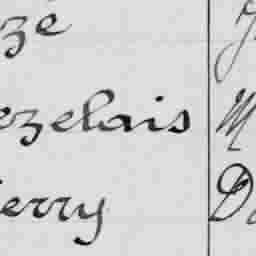 ze
ezelais M
ierry D